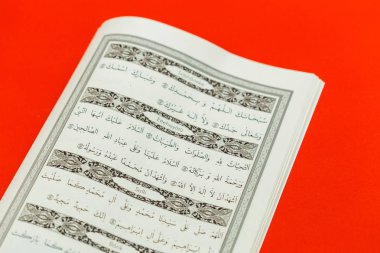 سُبْحَانَكَ اللَّهُمَّ وَ بِحَمْدِكَ وَتَبَارَكَ اسْمُكَ
وَتَعَالَى جَدُّكَ وَلَا اِلٰهَ غَيْرُكَ
اَلتَّحِيَّاتُ لِلّٰهِ وَالصَّلَوَاتُ وَالطَّيِّبَاتُ اَلسَّلَامُ عَلَيْكَ اَيُّهَا النَّبِيُّ
وَرَحْمَةُ اللّٰهِ وَبَرَكَاتُهُ اَلسَّلَامُ عَلَيْنَا وَعَلَى عِبَادِ اللّٰهِ الصَّالِحِينَ
اَشْهَدُ اَنْ لَا اِلٰهَ اِلَّا اللّٰهُ وَاَشْهَدُ اَنَّ مُحَمَّدًا عَبْدُهُ وَرَسُولُهُ
اَللّٰهُمَّ صَلِّ عَلَى مُحَمَّدٍ وَعَلَى اٰلِ مُحَمَّدٍ كَمَا صَلَّيْتَ
اِبْرَاهِيمَ وَعَلَى اٰلِ اِبْرَاهِيمَ اِنَّكَ حَمِيدٌ مَجِيدٌ
كَمَا بَارَكْتَ